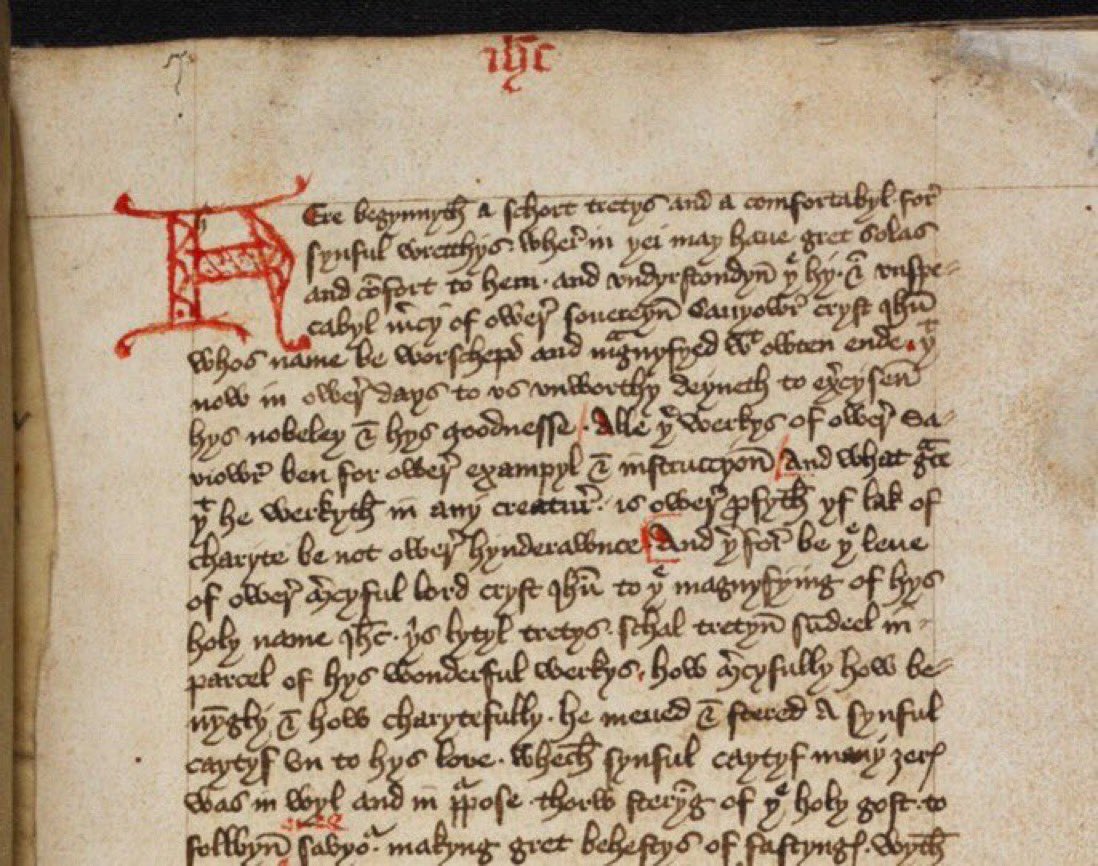 ihc
HEre begynnyth a schort tretys and a comfortabyl for
synful wrecchys. wher in þei may haue gret solas
and cōfort to hem. and vndyrstondyn þe hy. & vnspe-
cabyl mcy of ower souereyn Sauyowr cryst Ihū
whos name be worschepd and magnyfyed wt owten ende. þt
now in ower days to vs vnworthy deyneth to exercysen
hys nobeley & hys goodnesse / Alle þe werkys of ower Sa-
viowr ben for ower exampyl & instruccyon / And what gce
þt he werkyth in any creatur. is ower pfyth yf lak of
charyte be not ower hynderawnce. And þfor be þe leue
of ower mcyful lord cryst Ihū to þe magnyfying of hys
holy name Ihc. þis lytyl tretys. schal tretyn sūdeel in
parcel of hys wonderful werkys. how mcyfully how be-
nyngly & how charytefully. he meued & stered a synful
caytyf vn to hys love. whech synful caytyf many ȝerys
was in wyl and in ppose thorw steryg of þe holy gost. to
folwyn savyo. makyng gret behestys of fastyngys. wyth